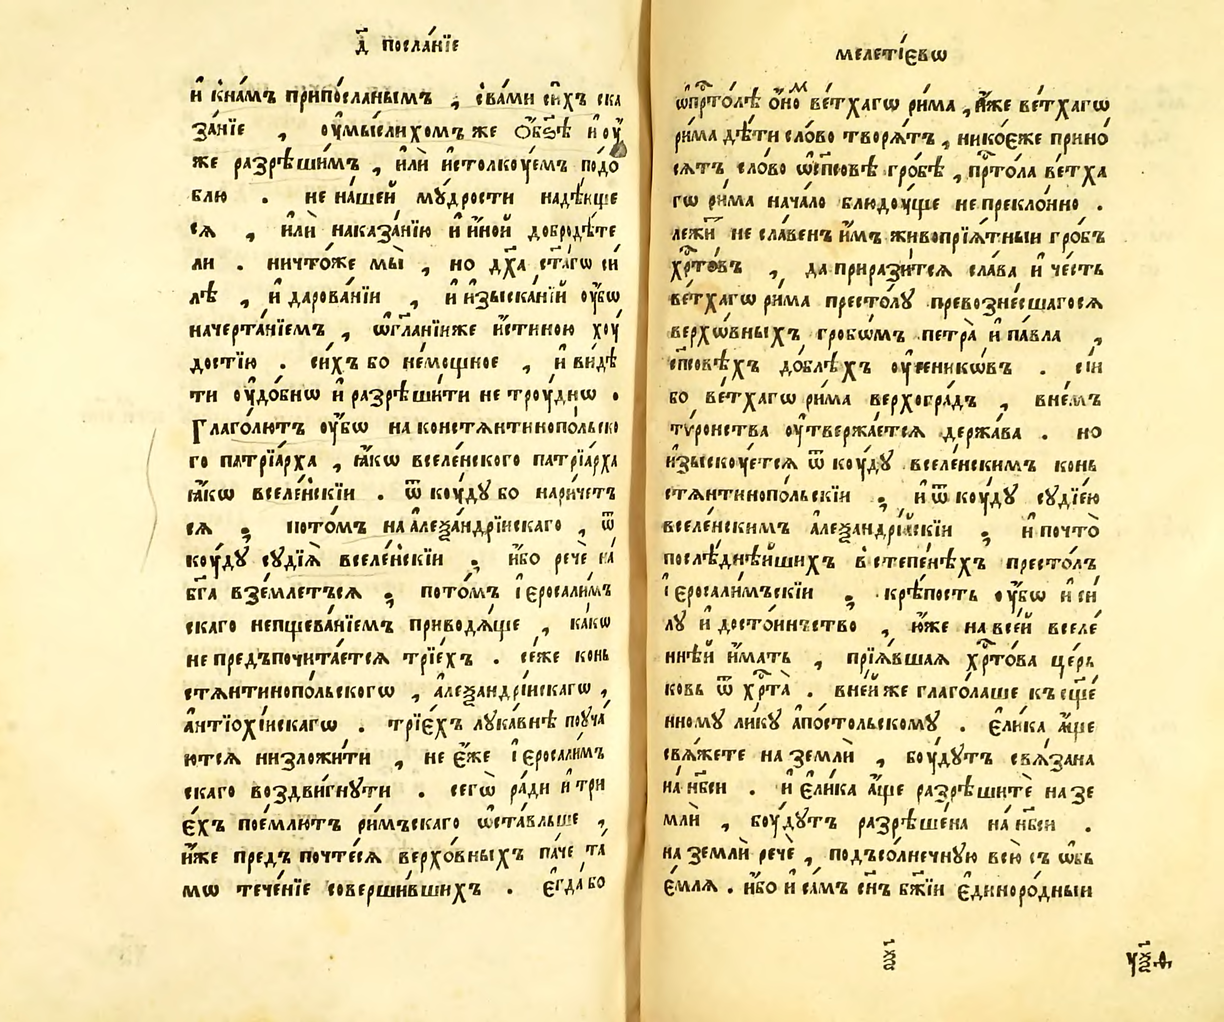 д҃ посла́нїе
и҆ к̾на́мъ припо́сланымъ , с̾ва́ми си́хъ ска
за́нїе , оу҆мы́слихомъ же ѻ҆́бѣ и҆ оу҆
же разрѣши́мъ , и҆лѝ и҆столкꙋ́емъ подо́
блю . не на́шей мꙋ́дрости надѣ́юще
сѧ , и҆лѝ наказа́нїю и҆ и҆но́й добродѣ́те
ли . ничто́же мы̀ , но дх҃а ст҃а́гѡ си́
лѣ , и҆ дарова́нїи , и҆ и҆зыска́нїй оу҆́бѡ
начерта́нїемъ , ѡ҆гл҃анїи же и҆́стиною хоу
до́стїю . си́хъ бо не́мощное , и҆ ви́дѣ
ти оу҆до́бнѡ и҆ разрѣши́ти не троу́днѡ .
Глаго́лютъ оу҆́бѡ на константинопо́льско
го патрїа́рха , ꙗ҆́кѡ вселе́нского патрїа́рха
ꙗ҆́кѡ вселе́нскїи . ѿ коу́дꙋ бо нари́четъ
сѧ ; пото́мъ на а҆леѯа́ндрїискаго , ѿ
коу́дꙋ сꙋдїѧ̀ вселе́нскїи ; и҆́бо речѐ на́
бг҃а взе́млетъсѧ ; пото́мъ і҆еросали́мъ
скаго непщева́нїемъ приводѧ́ще , ка́кѡ
не предъпочита́етсѧ трїе́хъ . се́же конь
стѧнтинопо́льскогѡ , а҆леѯандрі́искагѡ ,
а҆нтїохі́искагѡ . трїе́хъ лꙋка́внѣ поуча́
ютсѧ низложи́ти , не є҆́же і҆еросали́мъ
скаго воздви́гнꙋти . сегѡ̀ ра́ди и҆ три
є҆́хъ пое́млютъ ри́мъскаго ѡ҆ста́вльше ,
и҆́же предъ почте́сѧ верхо́вныхъ па́че та́
мѡ тече́нїе соверши́вшихъ . є҆гда́ бо
мелетїе́вѡ
ѡ҆ прⷭ҇то́лѣ ѻ҆́номъ ве́тхагѡ ри́ма , и҆́же ве́тхагѡ
ри́ма дѣ́ти сло́во творѧ́тъ , нико́еже прино́
сѧтъ сло́во ѡ҆ сп҃совѣ гро́бѣ , прⷭ҇то́ла ве́тха
гѡ ри́ма нача́ло блюдоу́ще непрекло́нно .
лежи́ не сла́венъ и҆́мъ живопрїѧ́тныи гро́бъ
хрⷭ҇то́въ , да прирази́тсѧ сла́ва и҆ че́сть
ве́тхагѡ ри́ма престо́лꙋ превозне́сшагосѧ
верхѡ́вныхъ гробѡ́мъ петра̀ и҆ па́вла ,
сп҃совѣхъ до́блѣхъ оу҆ченикѡ́въ . сїи́
бо ве́тхагѡ ри́ма верхогра́дъ , вне́мъ
тѵро́нства оу҆твержа́етсѧ держа́ва . но
и҆зыскꙋ́етсѧ ѿ коу́дꙋ вселе́нскимъ конь
стѧнтинопо́льскїи ; и҆ ѿ коу́дꙋ сꙋдїе́ю
вселе́нскимъ а҆леѯандрі́йскїи ; и҆ почто̀
послѣднѣ́йшихъ в̾степене́хъ престо́лъ
і҆еросали́мъскїи ; крѣ́пость оу҆́бѡ и҆ си́
лꙋ и҆ досто́инъство , ю҆́же на все́й вселе́
ннѣй и҆́мать , прїѧ́вшаѧ хрⷭ҇то́ва це́рь
ковь ѿ хрⷭ҇та̀ . в̾не́йже глаго́лаше къ сще́
нномꙋ ли́кꙋ а҆по́стольскомꙋ . є҆ли́ка а҆́ще
свѧ́жете на землѝ , боу́дꙋтъ свѧ́зана
на́ нб҃си . и҆ є҆ли́ка а҆́ще разрѣши́тѐ на зе
млѝ , боу́дꙋтъ разрѣше́на на́ нб҃си .
на землѝ речѐ , подъсо́лнечнꙋю всю̀ съ ѡ҆бъ
е́млѧ . и҆́бо и҆ са́мъ сн҃ъ бж҃їи є҆диноро́дныи